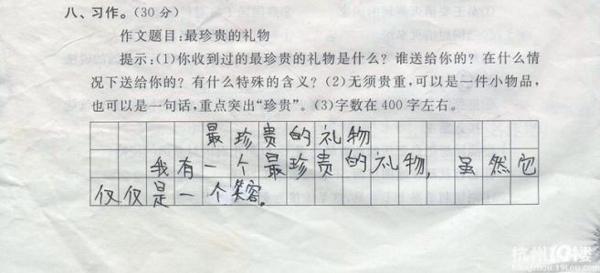 八、习作。(30 分)
作文题目:最珍贵的礼物
提示:(1)你收到过的最珍贵的礼物是什么? 谁送给你的? 在什么情
况下送给你的? 有什么特殊的含义? (2)无须贵重,可以是一件小物品,
也可以是一句话,重点突出“珍贵”。(3)字数在 400 字左右。
最珍贵的礼物
我有一个最珍贵的礼物,虽然它
仅仅是一个笑容。
杭州19楼